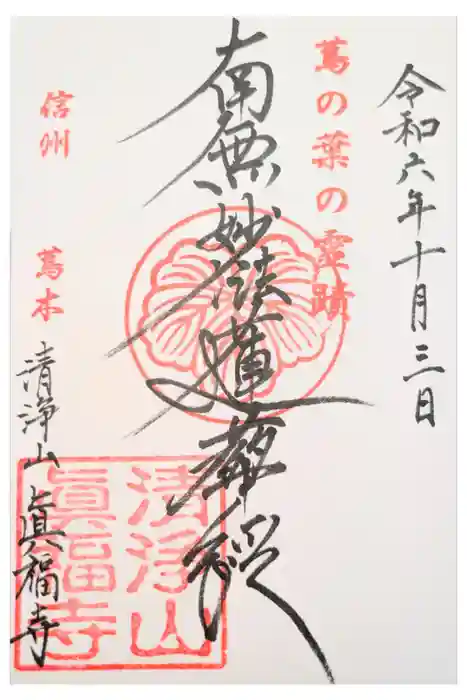 令和六年十月三日
蔦の葉の霊蹟
南無妙法蓮華經
信州 蔦木
清浄山 眞福寺
清浄山
眞福寺